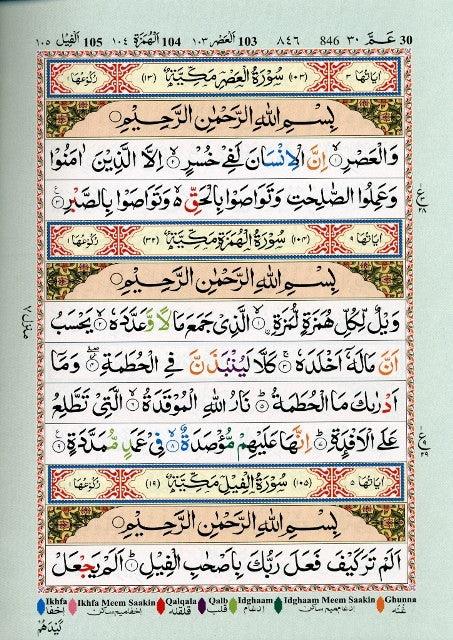 30 عـمّ ٣٠ 846 ٨٤٦ 103 العصر ١٠٣ 104 الهمزة ١٠٤ 105 الفيل ١٠٥
اٰيَاتُهَا ٣ (١٠٣) سُوْرَةُ الْعَصْرِ مَكِّيَّةٌ (١٣) رُكُوْعُهَا ١
بِسْمِ اللّٰهِ الرَّحْمٰنِ الرَّحِيْمِ
وَالْعَصْرِ ۙ﴿١﴾ اِنَّ الْاِنْسَانَ لَفِيْ خُسْرٍ ۙ﴿٢﴾ اِلَّا الَّذِيْنَ اٰمَنُوْا
وَعَمِلُوا الصّٰلِحٰتِ وَتَوَاصَوْا بِالْحَقِّ ۙ۬ وَتَوَاصَوْا بِالصَّبْرِ ﴿٣﴾
ع ٢٨
اٰيَاتُهَا ٩ (١٠٤) سُوْرَةُ الْهُمَزَةِ مَكِّيَّةٌ (٣٢) رُكُوْعُهَا ١
بِسْمِ اللّٰهِ الرَّحْمٰنِ الرَّحِيْمِ
وَيْلٌ لِّكُلِّ هُمَزَةٍ لُّمَزَةٍ ۙ﴿١﴾ الَّذِيْ جَمَعَ مَالًا وَّعَدَّدَهٗ ۙ﴿٢﴾ يَحْسَبُ
اَنَّ مَالَهٗۤ اَخْلَدَهٗ ۚ﴿٣﴾ كَلَّا لَيُنْۢبَذَنَّ فِي الْحُطَمَةِ ۖ﴿٤﴾ وَمَاۤ
اَدْرٰىكَ مَا الْحُطَمَةُ ؕ﴿٥﴾ نَارُ اللّٰهِ الْمُوْقَدَةُ ۙ﴿٦﴾ الَّتِيْ تَطَّلِعُ
عَلَى الْاَفْـِٕدَةِ ؕ﴿٧﴾ اِنَّهَا عَلَيْهِمْ مُّؤْصَدَةٌ ۙ﴿٨﴾ فِيْ عَمَدٍ مُّمَدَّدَةٍ ﴿٩﴾
ع ٢٩
منزل ٧
اٰيَاتُهَا ٥ (١٠٥) سُوْرَةُ الْفِيْلِ مَكِّيَّةٌ (١٩) رُكُوْعُهَا ١
بِسْمِ اللّٰهِ الرَّحْمٰنِ الرَّحِيْمِ
اَلَمْ تَرَ كَيْفَ فَعَلَ رَبُّكَ بِاَصْحٰبِ الْفِيْلِ ؕ﴿١﴾ اَلَمْ يَجْعَلْ
Ikhfa Ikhfa Meem Saakin Qalqala Qalb Idghaam Idghaam Meem Saakin Ghunna
اخفا اخفا میم ساکن قلقلہ قلب ادغام ادغام میم ساکن غنّہ
كَيْدَهُمْ